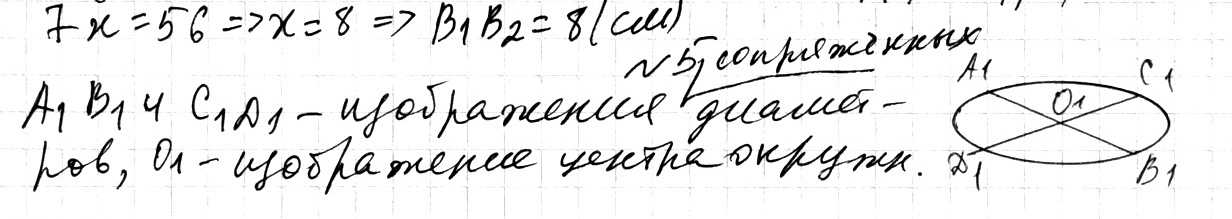 7x = 56 => x = 8 => B₁B₂ = 8 (см)
~5, сопряжённых
A₁B₁ и C₁D₁ – изображения диамет-
ров, O₁ – изображение центра окружн.
A1
C1
O1
D1
B1